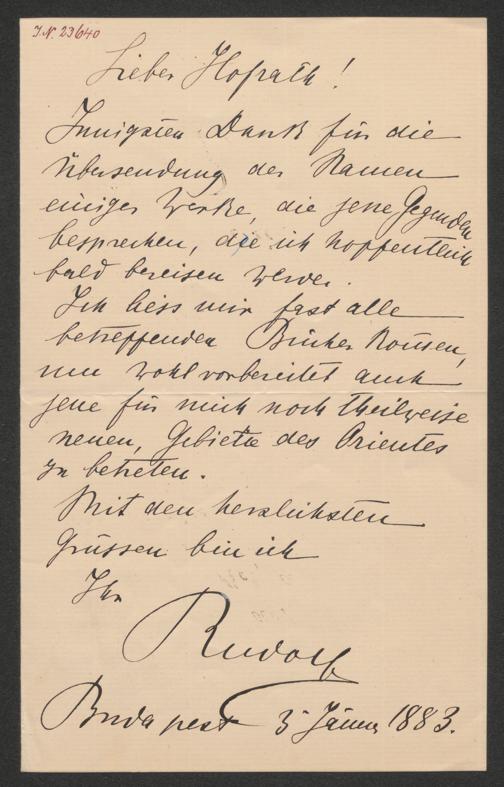 I.N. 23640
Lieber Hofrath!
Innigsten Dank für die
Übersendung der Namen
einiger Werke, die jene Gegenden
besprechen, die ich hoffentlich
bald bereisen werde.
Ich liess mir fast alle
betreffenden Bücher komen,
um wohl vorbereitet auch
jene für mich noch theilweise
neuen, Gebiete des Orientes
zu betreten.
Mit den herzlichsten
Grüssen bin ich
Ihr
Rudolf
Budapest 3 Jänner 1883.